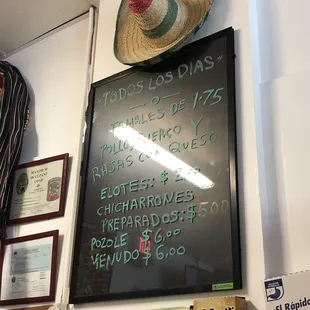 "TODOS LOS DIAS"
TAMALES DE 1.75
POLLO, PUERCO Y
RAJAS CON QUESO
ELOTES: $
CHICHARRONES
PREPARADOS: $500
POZOLE $6,00
MENUDO $6,00
El Rápido